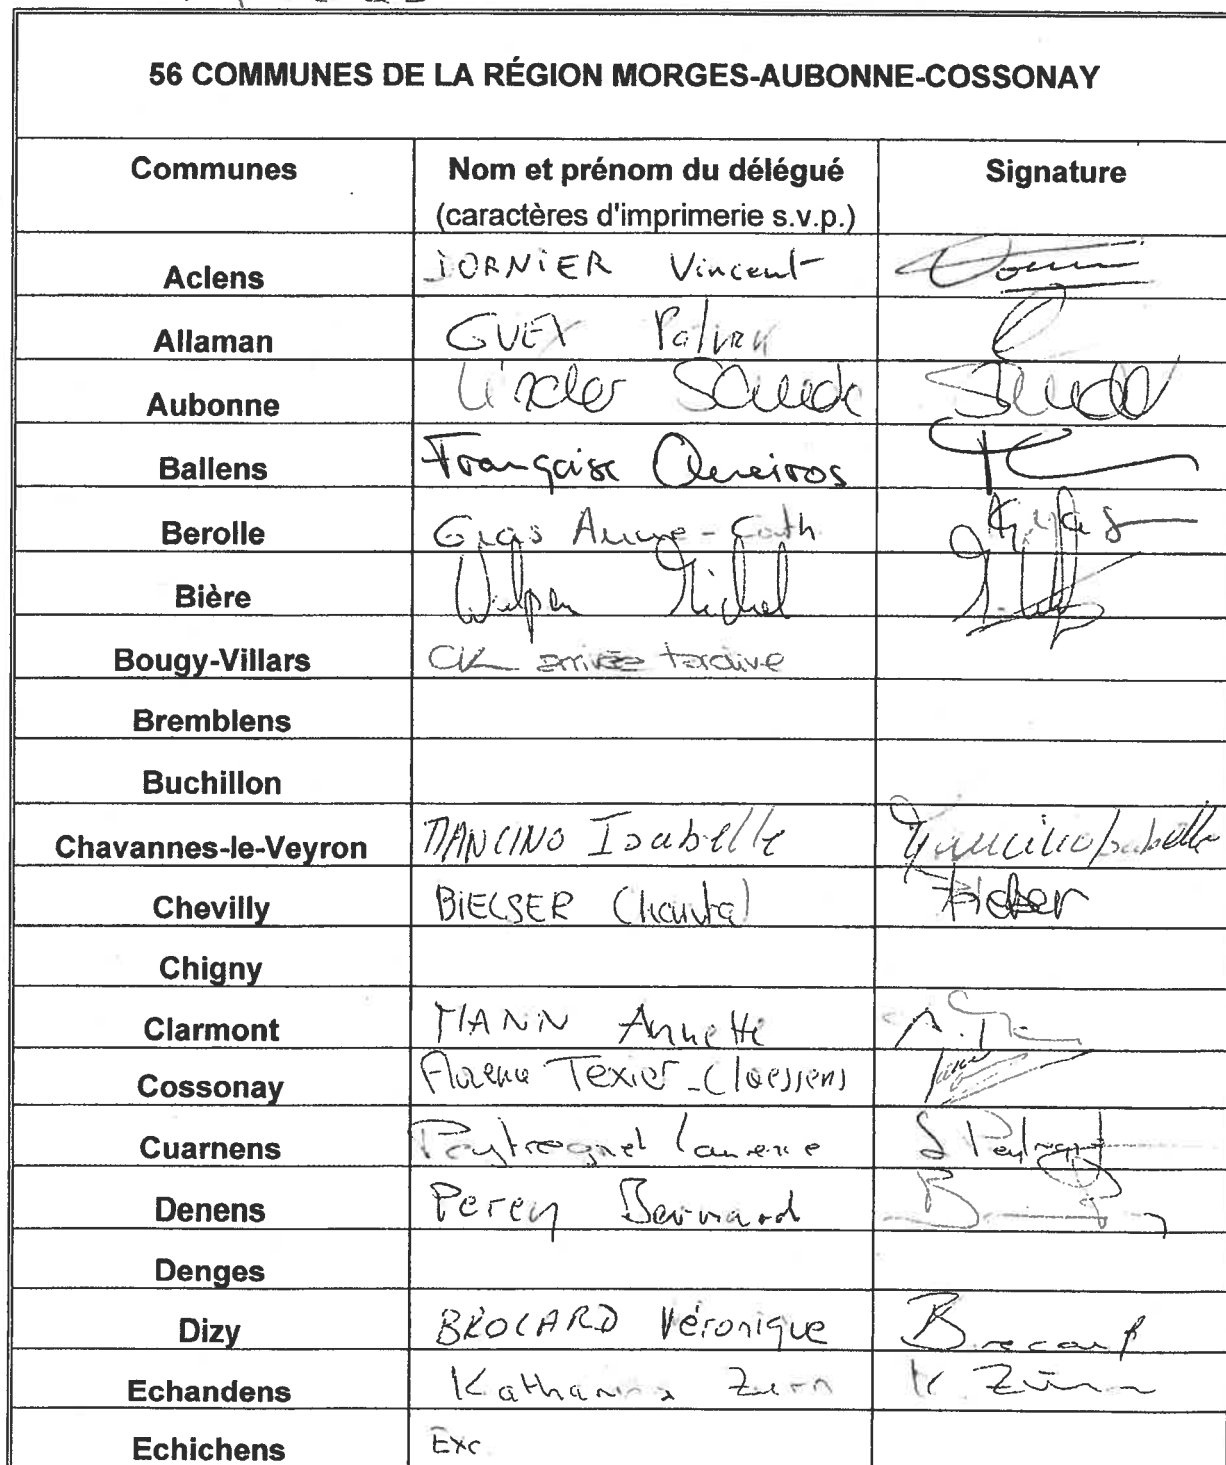 56 COMMUNES DE LA RÉGION MORGES-AUBONNE-COSSONAY
Communes Nom et prénom du délégué Signature
(caractères d'imprimerie s.v.p.)
Aclens JORNIER Vincent
Allaman GUEX
Aubonne
Ballens Françoise Queiros
Berolle Gras Anne-Cath
Bière Michel
Bougy-Villars arrivée tardive
Bremblens
Buchillon
Chavannes-le-Veyron MANCINO Isabelle Mancino Isabelle
Chevilly BIELSER Chantal
Chigny
Clarmont MANN Annette
Cossonay Florence Texier-Claessens
Cuarnens Peytregnet Laurence
Denens Perey Bernard
Denges
Dizy BROCARD Véronique Brocard
Echandens Katharina Zurn K Zürn
Echichens Exc